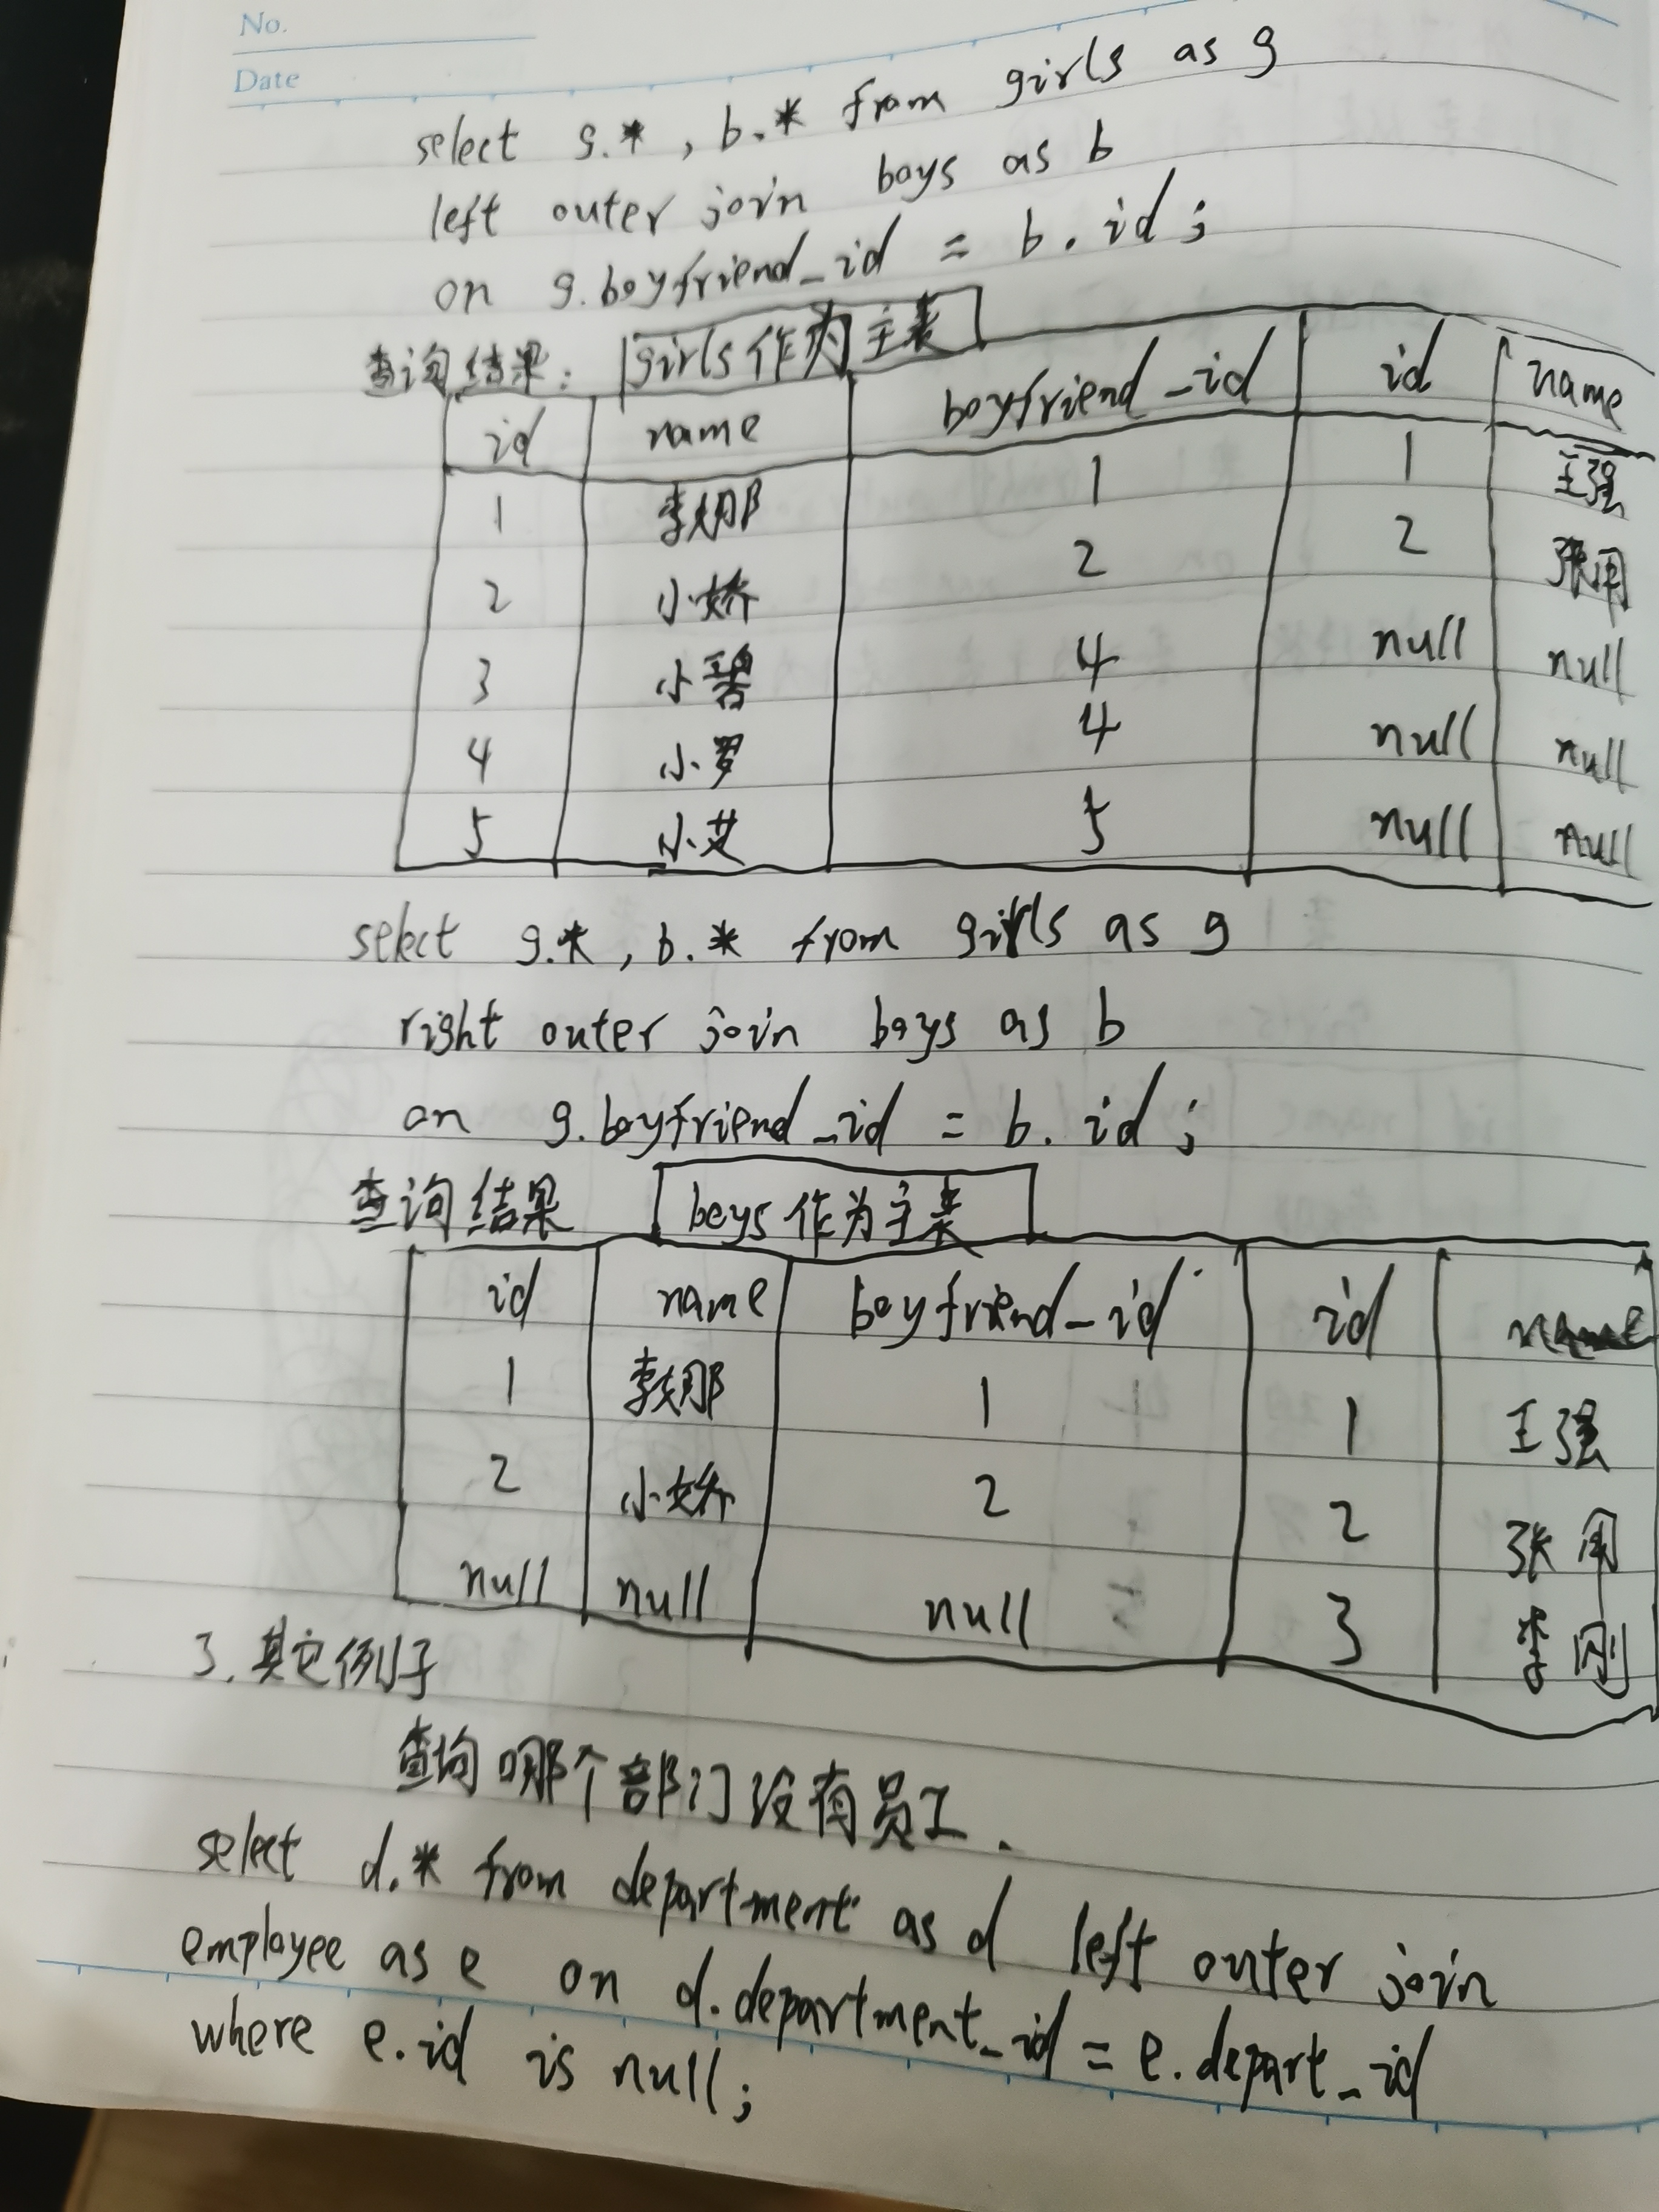 No.
Date
select g.*, b.* from girls as g
left outer join boys as b
on g.boyfriend_id = b.id;
查询结果: girls作为主表
id name boyfriend_id id name
1 李娜 1 1 王强
2 小娇 2 2 张周
3 小碧 4 null null
4 小罗 4 null null
5 小艾 5 null null
select g.*, b.* from girls as g
right outer join boys as b
on g.boyfriend_id = b.id;
查询结果 boys作为主表
id name boyfriend_id id name
1 李娜 1 1 王强
2 小娇 2 2 张周
null null null 3 李刚
3.其它例子
查询哪个部门没有员工.
select d.* from department as d left outer join
employee as e on d.department_id = e.depart_id
where e.id is null;